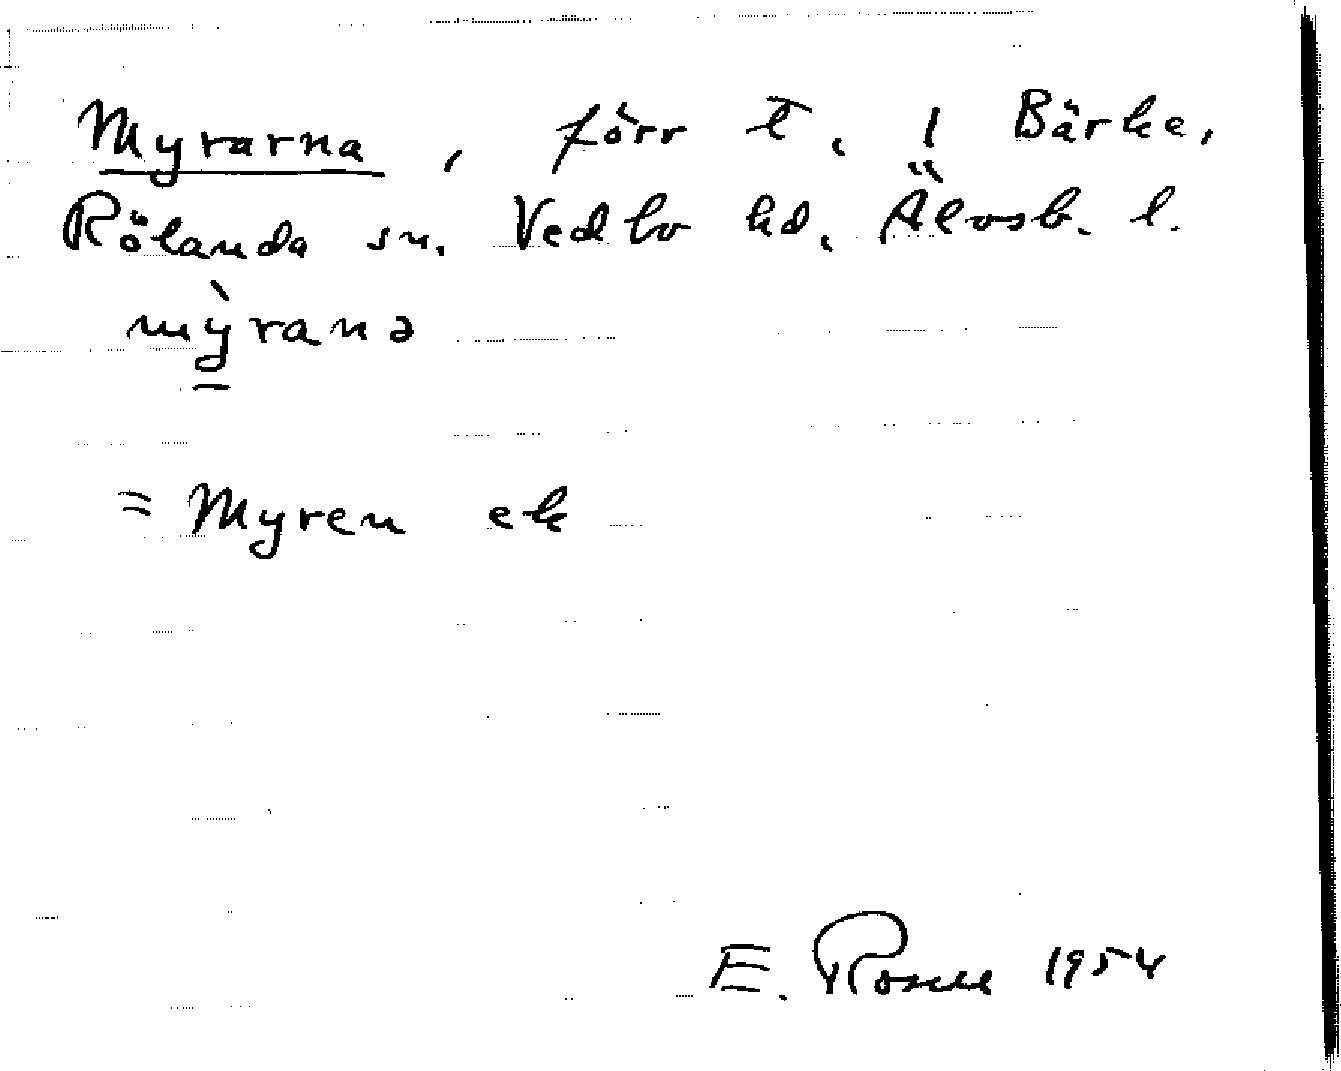 Myrarna, förr t. i Bärke,
Rölanda sn. Vedbo hd. Älvsb. l.
mỳranə
= Myren ek
E. Rosell 1954